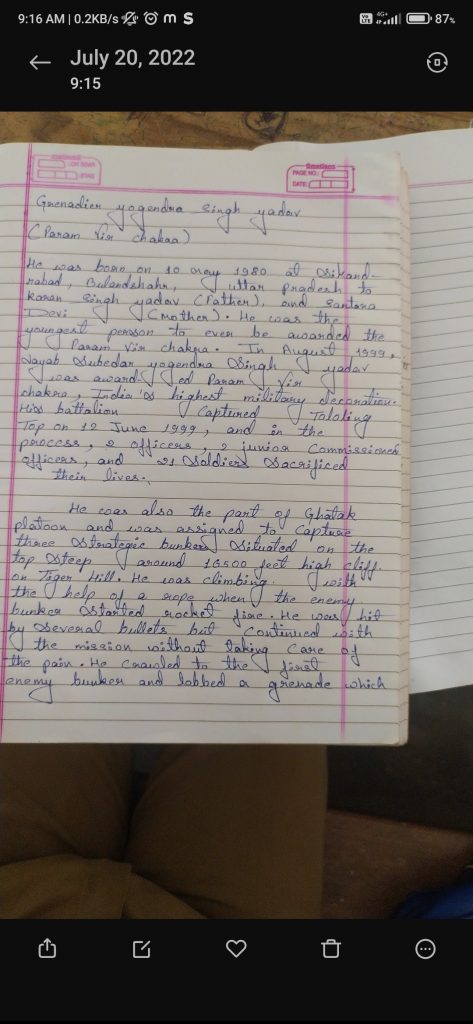 9:16 AM | 0.2KB/s
87%
July 20, 2022
9:15
PAGE NO.:
DATE:
Grenadier yogendra Singh yadav
(Param Vir chakra)
He was born on 10 may 1980 at Sikand-
rabad, Bulandshahr, uttar pradesh to
karan Singh yadav (Father), and Santara
Devi (mother). He was the
youngest person to ever be awarded the
Param Vir chakra. In August 1999,
Nayab Subedar yogendra Singh yadav
was awarded Param Vir
chakra, India's highest military decoration.
His battalion Captured Tololing
Top on 12 June 1999, and in the
process, 2 officers, 2 junior Commissioned
officers, and 21 Soldiers Sacrificed
their lives.
He was also the part of Ghatak
platoon and was assigned to Capture
three Strategic bunkers Situated on the
top Steep around 16500 feet high cliff
on Tiger Hill. He was climbing with
the help of a rope when the enemy
bunker Started rocket fire. He was hit
by Several bullets but Continued with
the mission without taking Care of
the pain. He Crawled to the first
enemy bunker and lobbed a grenade which